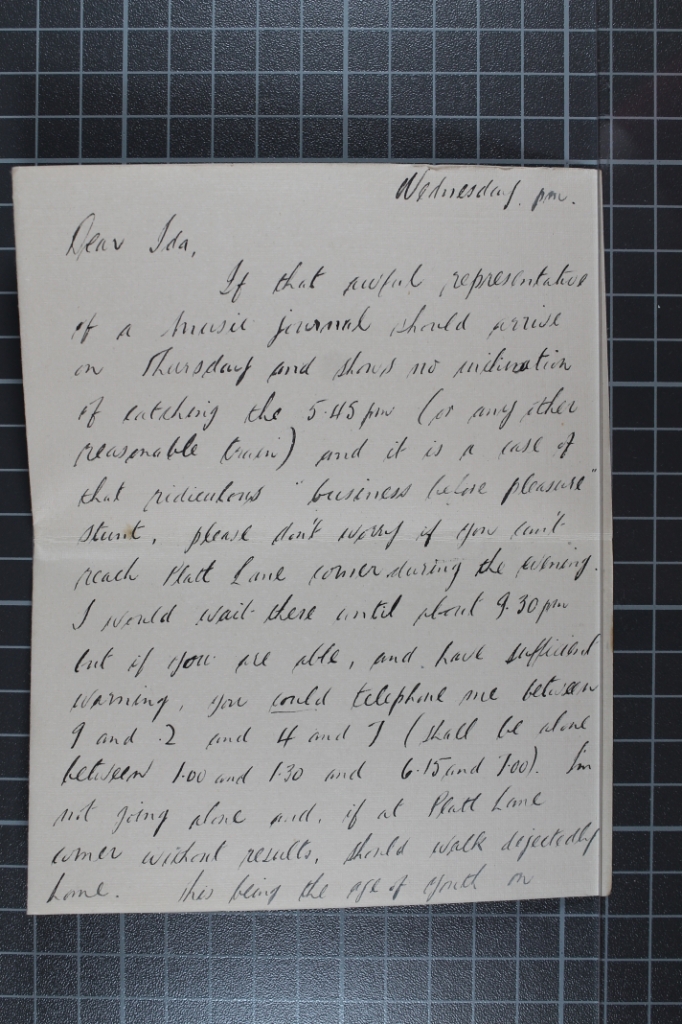 Wednesday. pm.
Dear Ida,
If that awful representative
of a music journal should arrive
on Thursday and shows no inclination
of catching the 5.45 pm (or any other
reasonable train) and it is a case of
that ridiculous "business before pleasure"
stunt, please don't worry if you can't
reach Platt Lane corner during the evening.
I would wait there until about 9.30 pm
but if you are able, and have sufficient
warning, you could telephone me between
9 and 2 and 4 and 7 (shall be alone
between 1.00 and 1.30 and 6.15 and 7.00). I'm
not going alone and, if at Platt Lane
corner without results, should walk dejectedly
home. This being the age of youth on